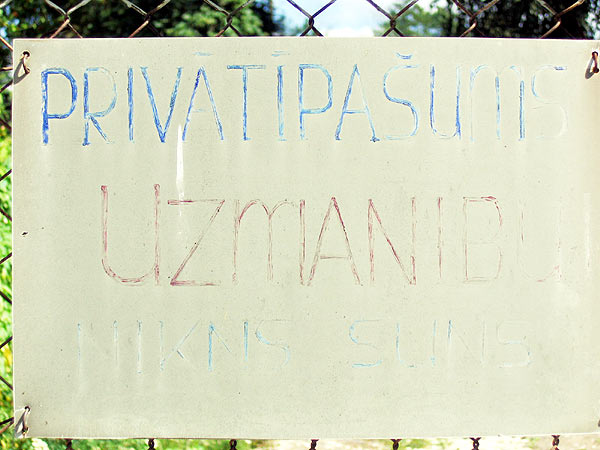 PRIVĀTĪPAŠUMS
UZMANĪBU
NIKNS SUNS